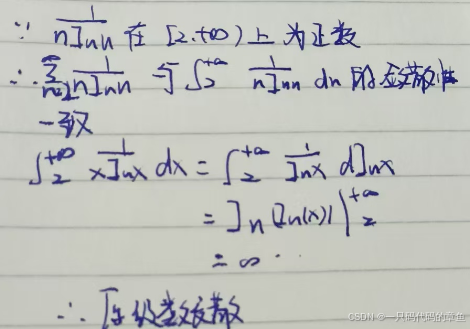 ∵ 1/(n ln n) 在 [2,+∞) 上为正数
∴ ∑_{n=2}^{∞} 1/(n ln n) 与 ∫_2^{+∞} 1/(n ln n) dn 的敛散性
一致
∫_2^{+∞} 1/(x ln x) dx = ∫_2^{+∞} 1/(ln x) d ln x
= ln |ln(x)| |_2^{+∞}
= ∞
∴ 原级数发散
CSDN @一只码代码的章鱼